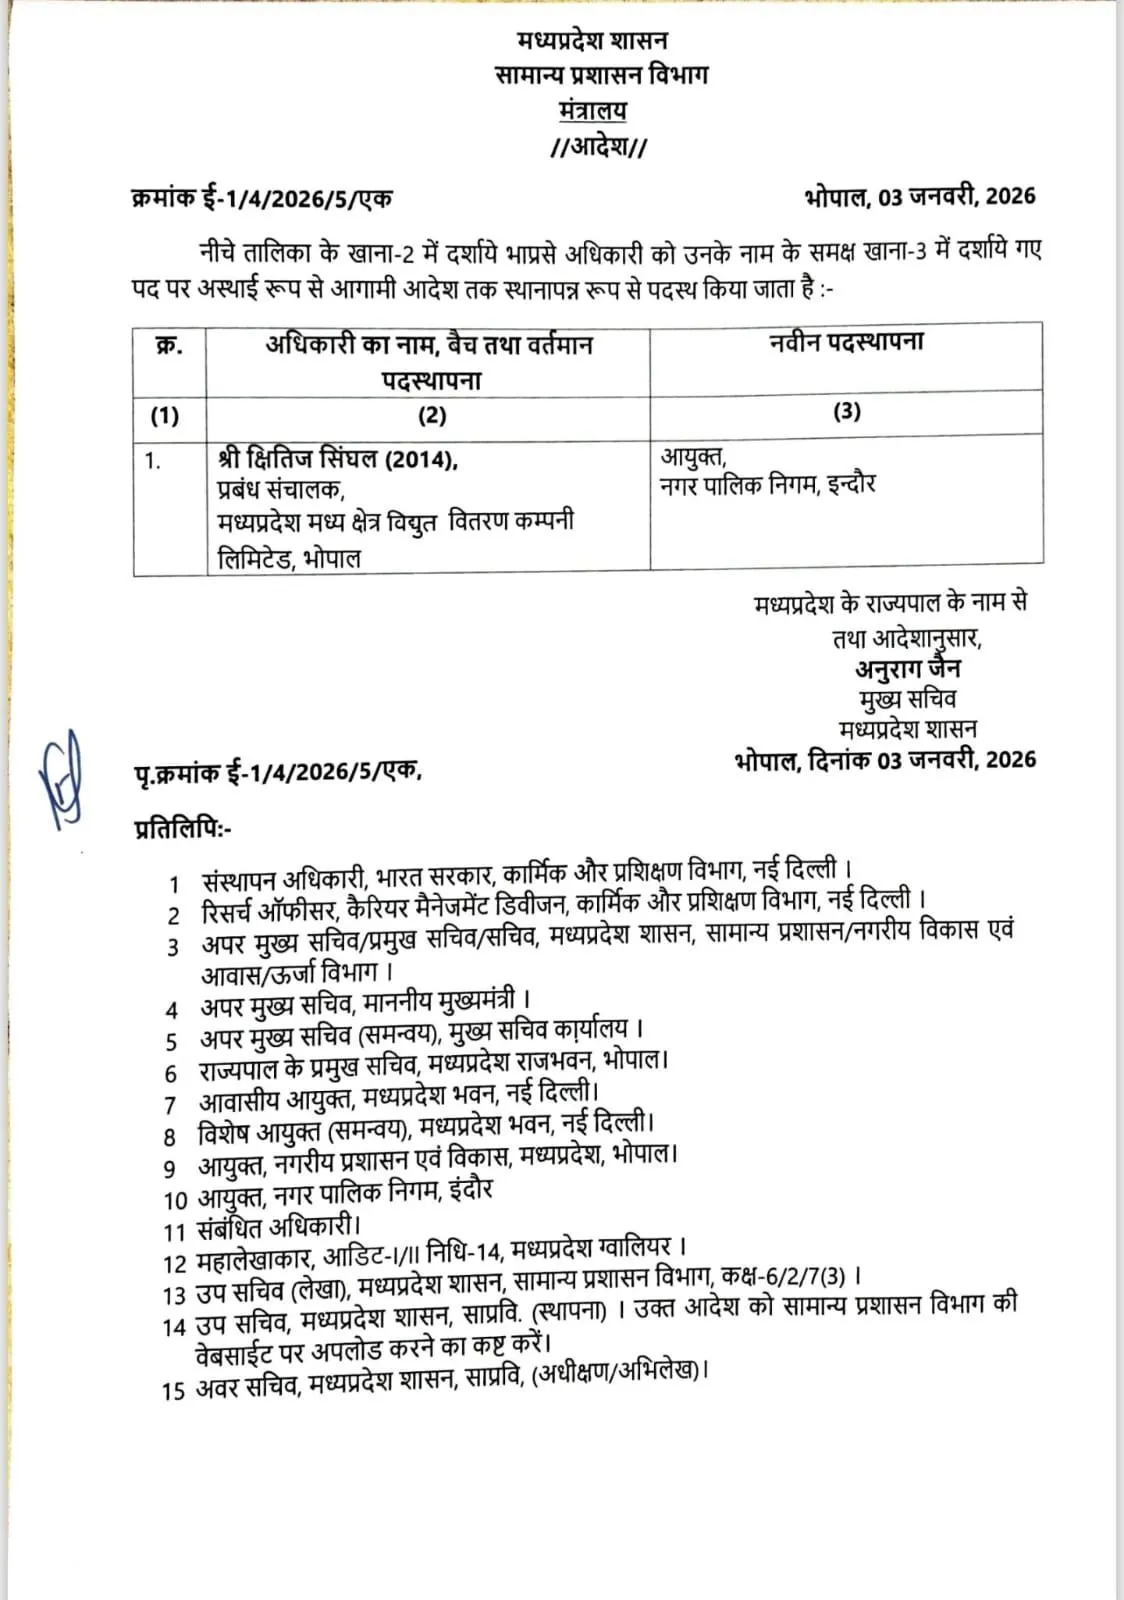 मध्यप्रदेश शासन
सामान्य प्रशासन विभाग
मंत्रालय
//आदेश//
क्रमांक ई-1/4/2026/5/एक भोपाल, 03 जनवरी, 2026
नीचे तालिका के खाना-2 में दर्शाये भाप्रसे अधिकारी को उनके नाम के समक्ष खाना-3 में दर्शाये गए
पद पर अस्थाई रूप से आगामी आदेश तक स्थानापन्न रूप से पदस्थ किया जाता है :-
क्र. अधिकारी का नाम, बैच तथा वर्तमान नवीन पदस्थापना
पदस्थापना
(1) (2) (3)
1. श्री क्षितिज सिंघल (2014), आयुक्त,
प्रबंध संचालक, नगर पालिक निगम, इन्दौर
मध्यप्रदेश मध्य क्षेत्र विद्युत वितरण कम्पनी
लिमिटेड, भोपाल
मध्यप्रदेश के राज्यपाल के नाम से
तथा आदेशानुसार,
अनुराग जैन
मुख्य सचिव
मध्यप्रदेश शासन
पृ.क्रमांक ई-1/4/2026/5/एक, भोपाल, दिनांक 03 जनवरी, 2026
प्रतिलिपिः-
1 संस्थापन अधिकारी, भारत सरकार, कार्मिक और प्रशिक्षण विभाग, नई दिल्ली ।
2 रिसर्च ऑफीसर, कैरियर मैनेजमेंट डिवीजन, कार्मिक और प्रशिक्षण विभाग, नई दिल्ली ।
3 अपर मुख्य सचिव/प्रमुख सचिव/सचिव, मध्यप्रदेश शासन, सामान्य प्रशासन/नगरीय विकास एवं
आवास/ऊर्जा विभाग ।
4 अपर मुख्य सचिव, माननीय मुख्यमंत्री ।
5 अपर मुख्य सचिव (समन्वय), मुख्य सचिव कार्यालय ।
6 राज्यपाल के प्रमुख सचिव, मध्यप्रदेश राजभवन, भोपाल।
7 आवासीय आयुक्त, मध्यप्रदेश भवन, नई दिल्ली।
8 विशेष आयुक्त (समन्वय), मध्यप्रदेश भवन, नई दिल्ली।
9 आयुक्त, नगरीय प्रशासन एवं विकास, मध्यप्रदेश, भोपाल।
10 आयुक्त, नगर पालिक निगम, इंदौर
11 संबंधित अधिकारी।
12 महालेखाकार, आडिट-I/II निधि-14, मध्यप्रदेश ग्वालियर ।
13 उप सचिव (लेखा), मध्यप्रदेश शासन, सामान्य प्रशासन विभाग, कक्ष-6/2/7(3) ।
14 उप सचिव, मध्यप्रदेश शासन, साप्रवि. (स्थापना) । उक्त आदेश को सामान्य प्रशासन विभाग की
वेबसाईट पर अपलोड करने का कष्ट करें।
15 अवर सचिव, मध्यप्रदेश शासन, साप्रवि, (अधीक्षण/अभिलेख)।